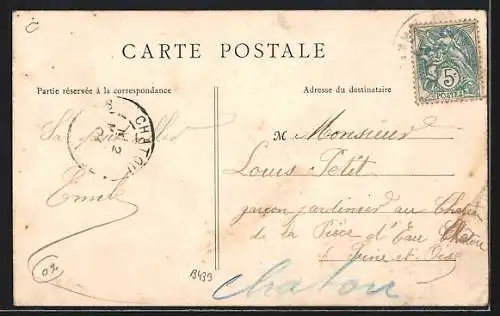 CARTE POSTALE
Partie réservée à la correspondance
Adresse du destinataire
5c
POSTES
CHATOU
M Monsieur
Louis Petit
garçon jardinier au
de la Pièce d'Eau Chatou
Seine-et-Oise
Emile
B439
Chatou